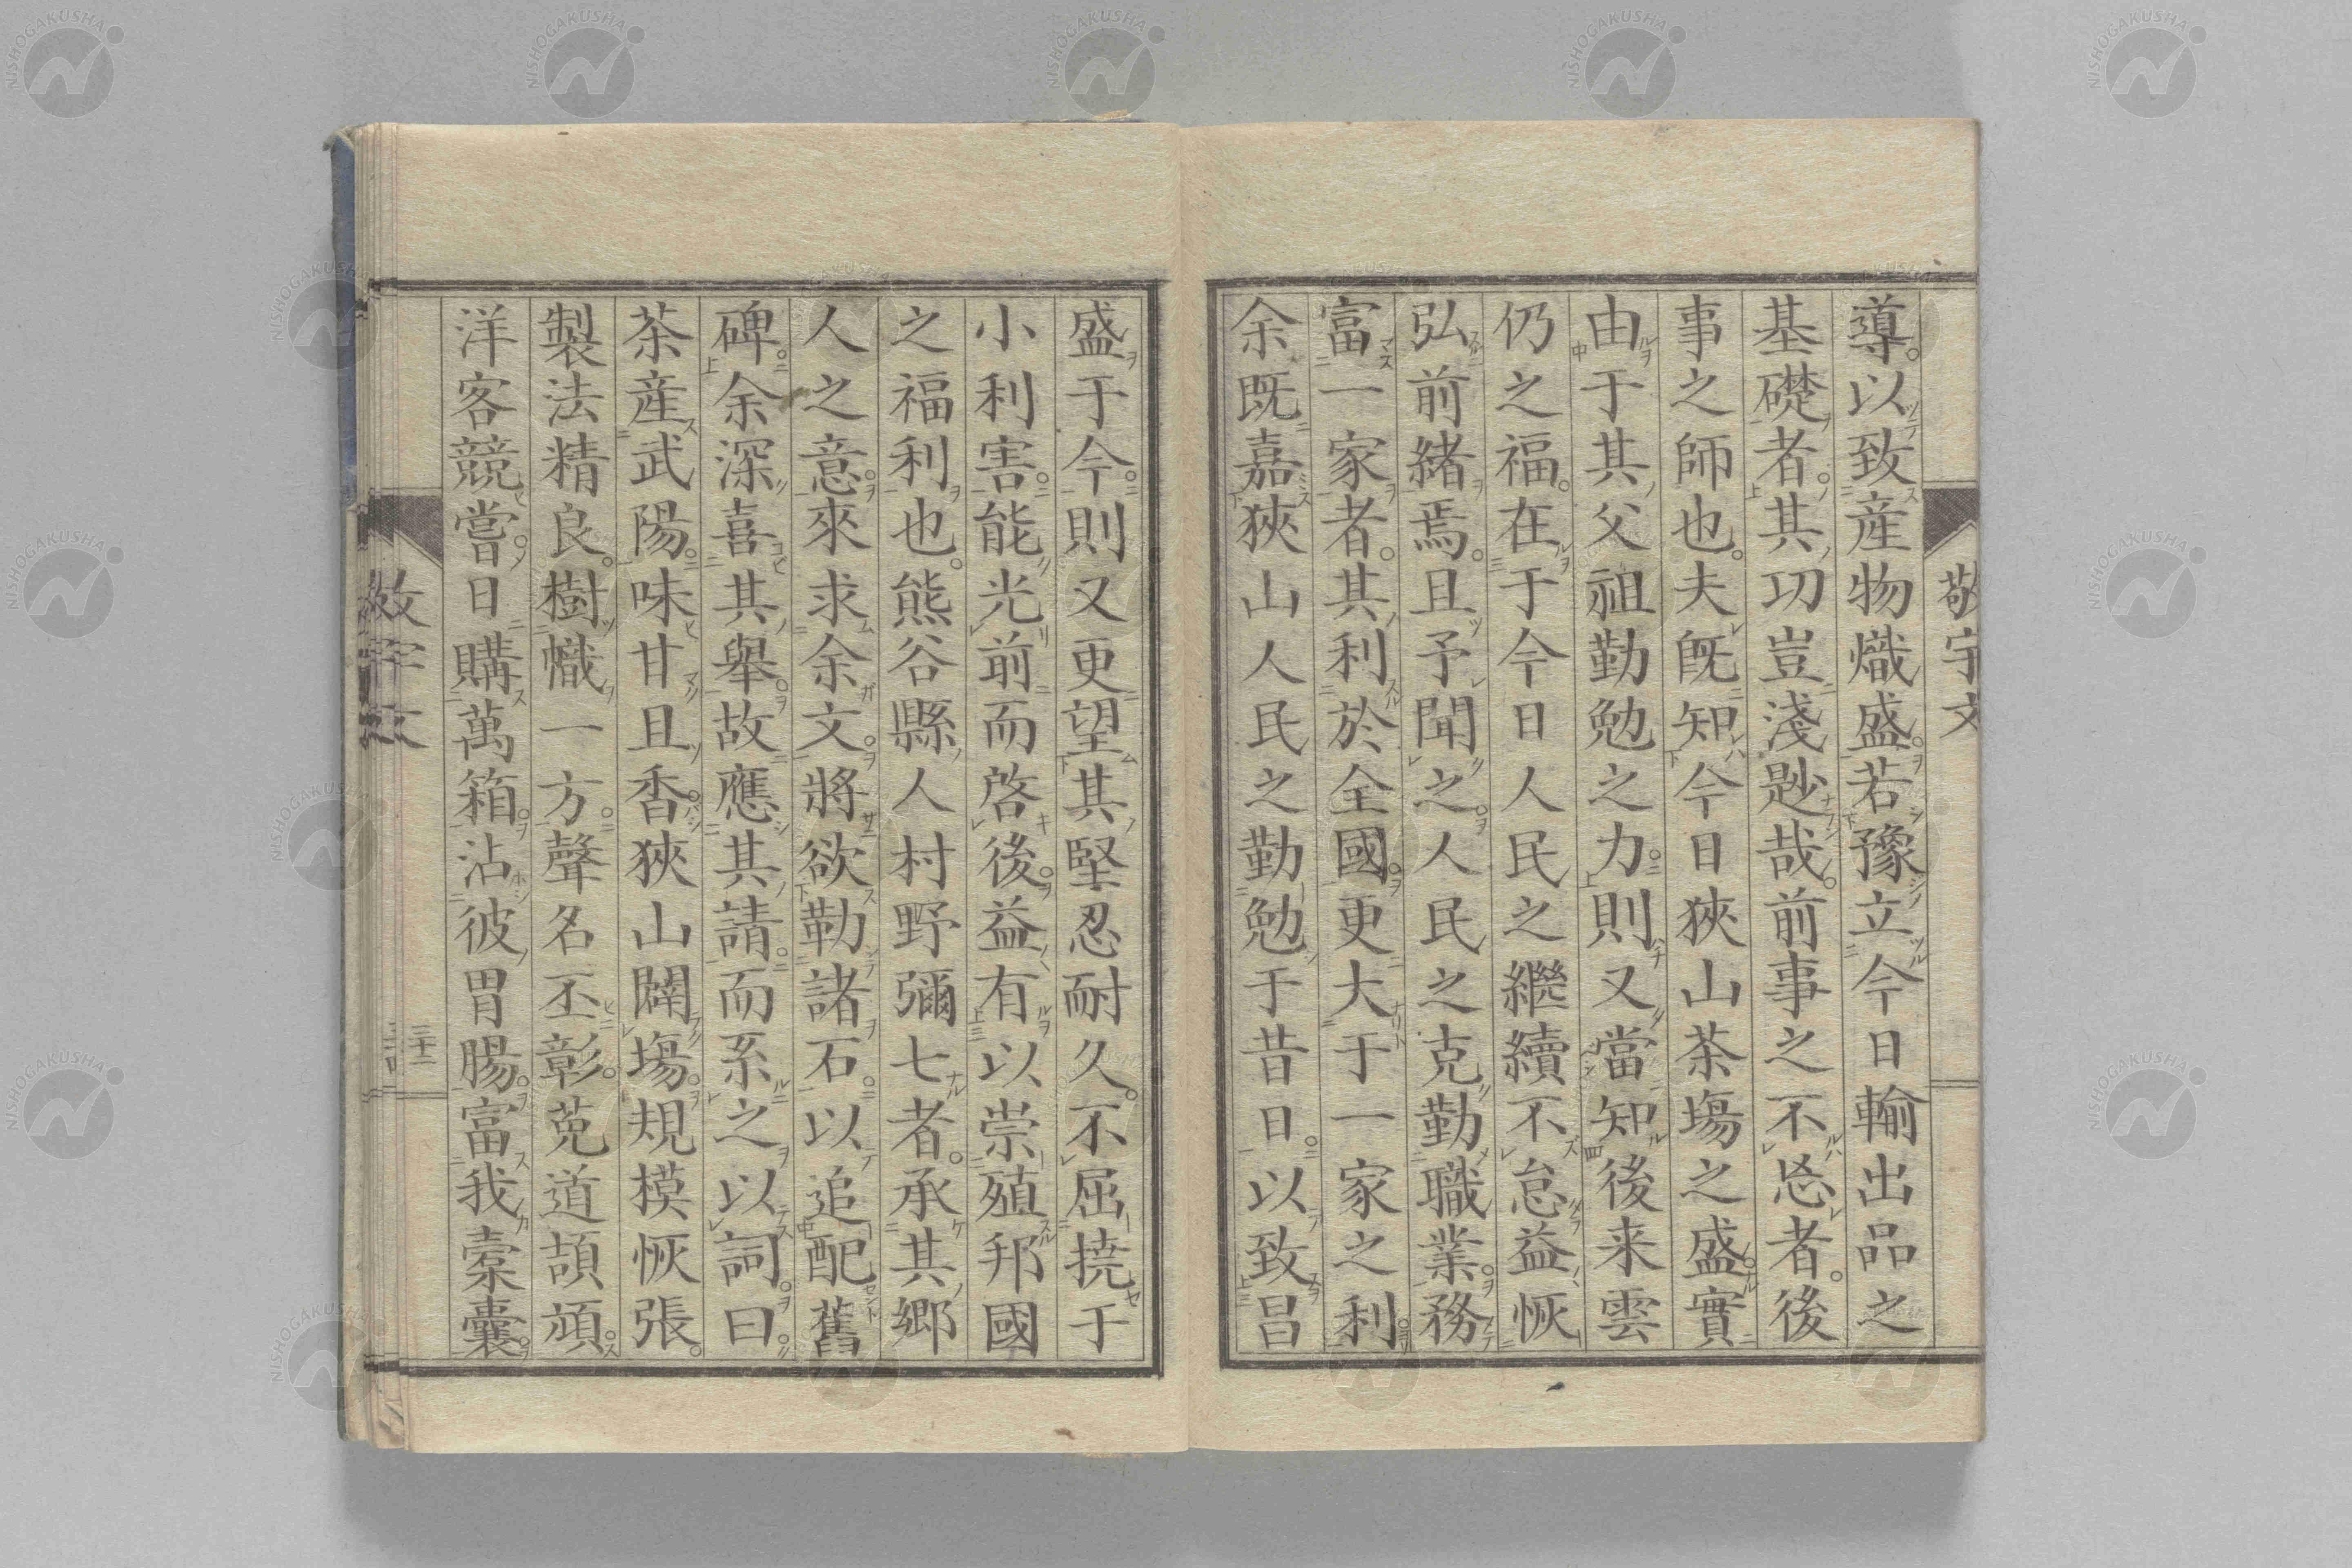 敬宇文
導。以致産物熾盛。若豫立今日輸出品之
基礎者。其功豈淺尠哉。前事之不忘者。後
事之師也。夫既知今日狹山茶場之盛。實
由于其父祖勤勉之力。則又當知後来雲
仍之福。在于今日人民之繼續不怠益恢
弘前緒焉。且予聞之。人民之克勤職業。務
富一家者。其利於全國。更大于一家之利。
余既嘉狹山人民之勤勉于昔日。以致昌
盛于今。則又更望其堅忍耐久。不屈撓于
小利害。能光前而啓後。益有以崇殖邦國
之福利也。熊谷縣人村野彌七者。承其鄉
人之意。來求余文。將欲勒諸石。以追配舊
碑。余深喜其舉。故應其請。而系之以詞。曰。
茶産武陽。味甘且香。狹山闢塲。規模恢張。
製法精良。樹幟一方。聲名丕彰。莬道頡頏。
洋客競嘗。日購萬箱。沾彼胃腸。富我槖囊。
敬宇文
三十二